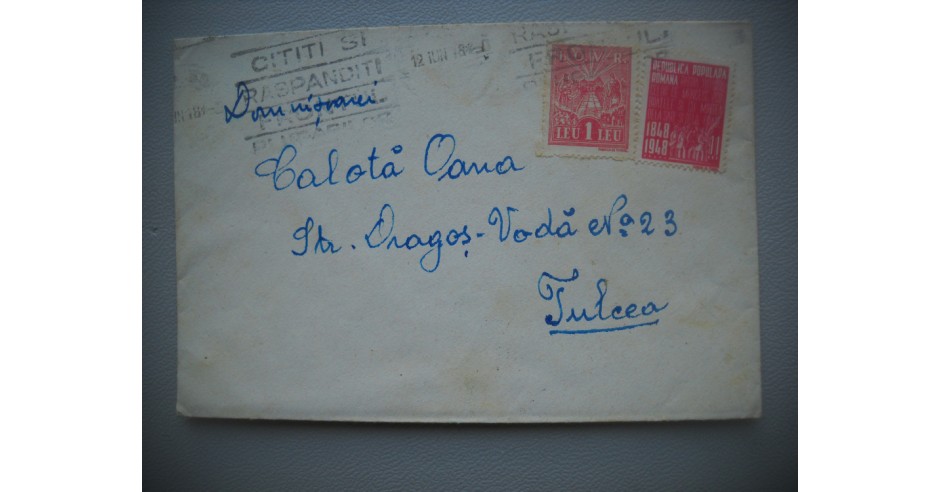 CITITI SI
RASPANDITI
12 IUN 48
Domnișoarei
Calotă Oana
Str. Dragoș-Vodă No 23
Tulcea
LEU 1 LEU
REPUBLICA POPULARA
ROMANA
1848
1948